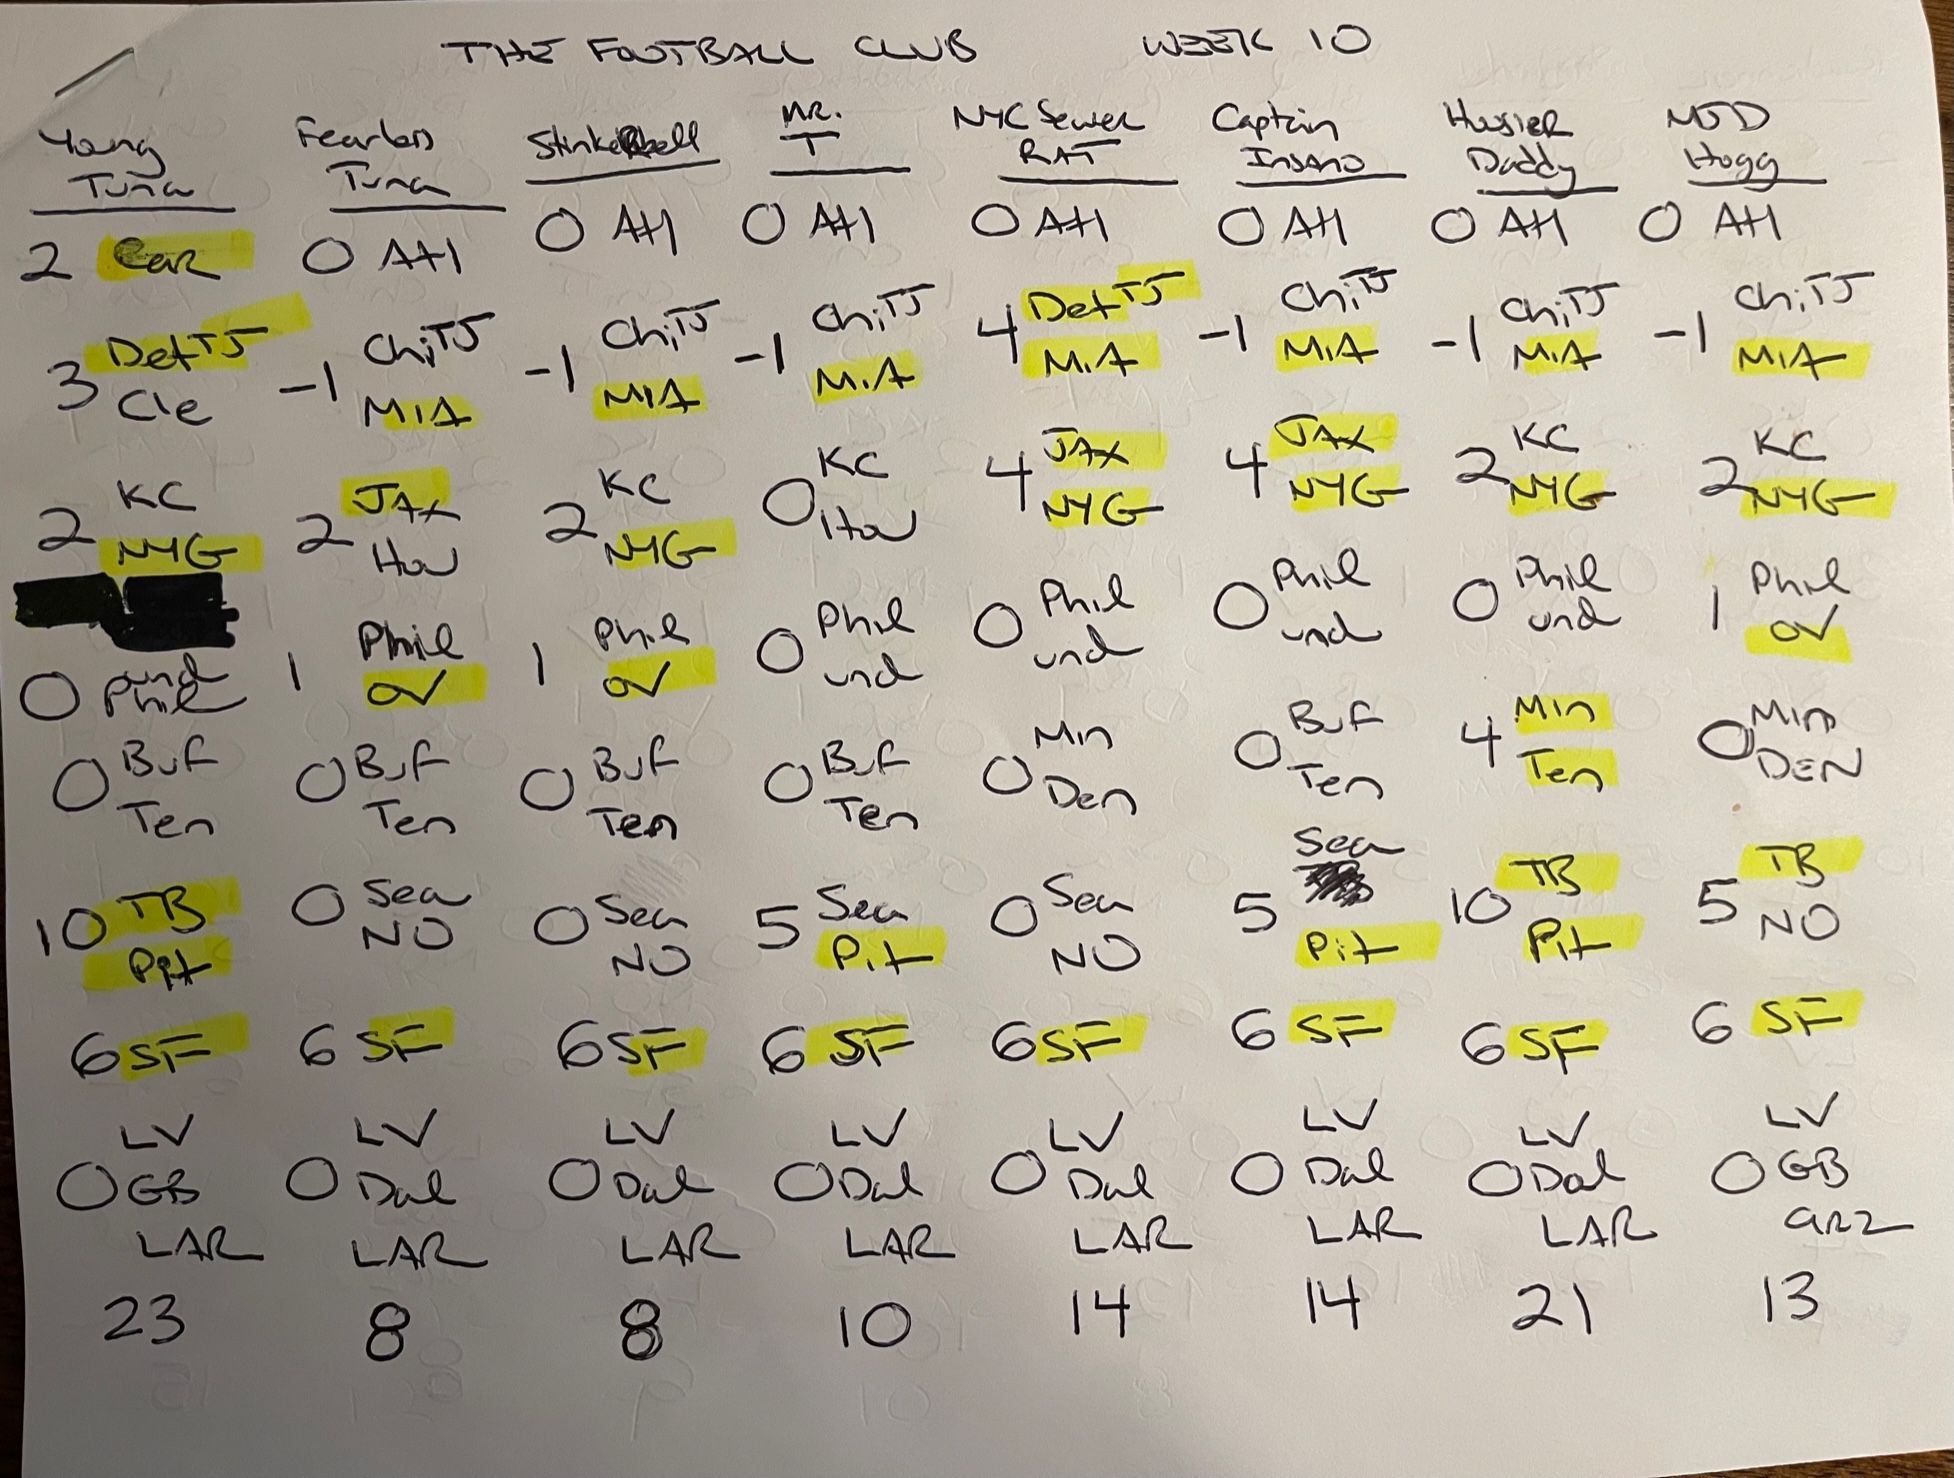 THE FOOTBALL CLUB WEEK 10
Young Tuna Fearless Tuna StinkerBell MR. T NYC Sewer RAT Captain Insano Husier Daddy MJD Hogg
2 Car 0 Atl 0 Atl 0 Atl 0 Atl 0 Atl 0 Atl 0 Atl
Det TJ Chi TJ Chi TJ Chi TJ Det TJ Chi TJ Chi TJ Chi TJ
3 -1 -1 -1 4 -1 -1 -1
Cle MIA MIA MIA MIA MIA MIA MIA
KC JAX KC KC JAX JAX KC KC
2 2 2 0 4 4 2 2
NYG Hou NYG Hou NYG NYG NYG NYG
und Phil Phil Phil Phil Phil Phil Phil
0 1 1 0 0 0 0 1
Phil OV OV und und und und OV
Buf Buf Buf Buf Min Buf Min Min
0 0 0 0 0 0 4 0
Ten Ten Ten Ten Den Ten Ten DEN
TB Sea Sea Sea Sea Sea TB TB
10 0 0 5 0 5 10 5
Pit NO NO Pit NO Pit Pit NO
6 SF 6 SF 6 SF 6 SF 6 SF 6 SF 6 SF 6 SF
LV LV LV LV LV LV LV LV
0 GB 0 Dal 0 Dal 0 Dal 0 Dal 0 Dal 0 Dal 0 GB
LAR LAR LAR LAR LAR LAR LAR arz
23 8 8 10 14 14 21 13